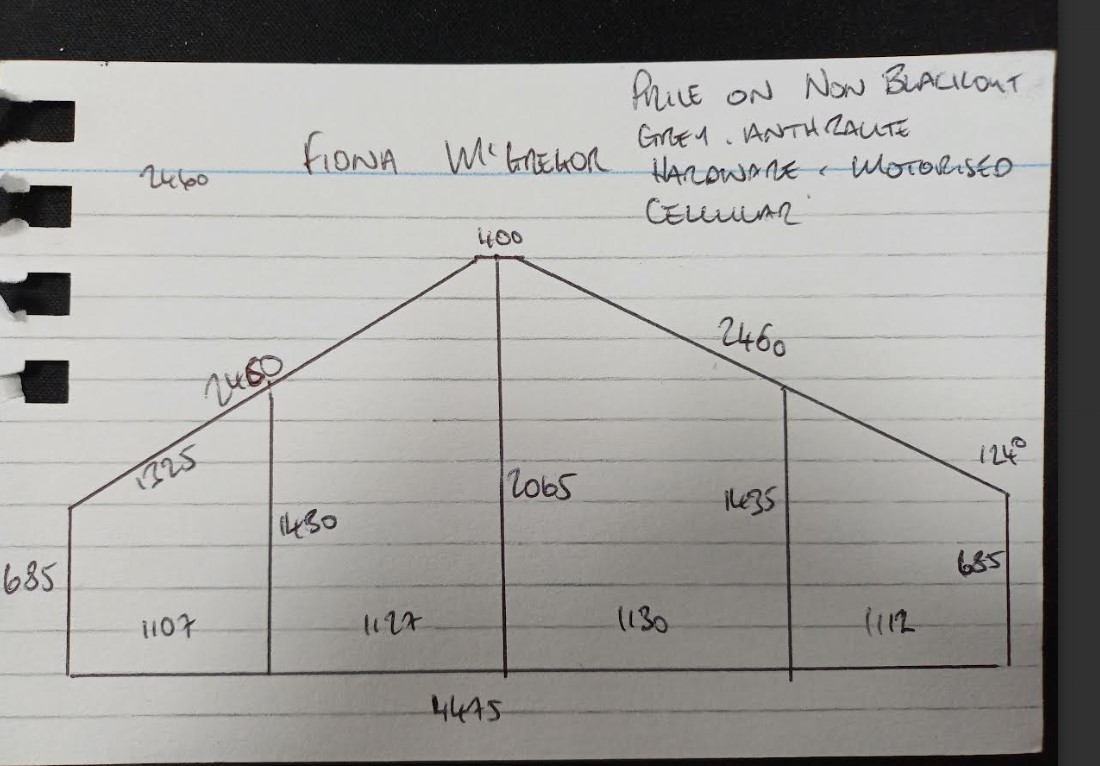 PRICE ON NON BLACKOUT
GREY. ANTHRACITE
HARDWARE. MOTORISED
CELLULAR
FIONA McGREGOR
2460
400
2460
2460
1325
124°
2065
1435
1430
685
685
1107
1127
1130
1112
4475